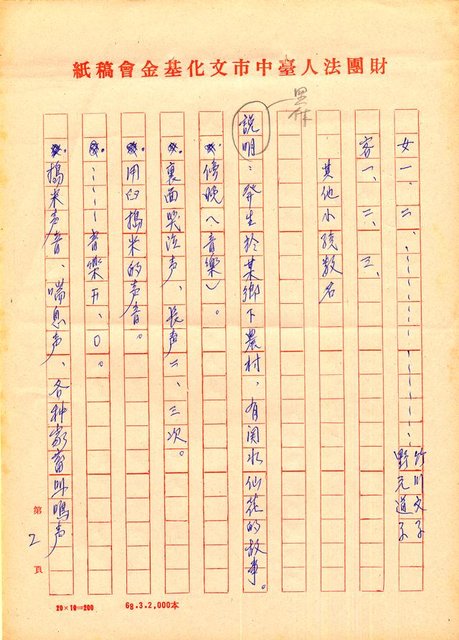 財團法人臺中市文化基金會稿紙
黑体
女一、二、…………… 竹川文子
野元道子
客一、二、三、
其他小孩数名
説明：發生於某鄉下農村，有関水仙花的故事。
※．傍晚（音樂）。
※．裏面哭泣声、長声二、三次。
※．用臼搗米的声音。
※．………音樂F、O。
※．搗米声音、喘息声、各种家畜叫鳴声
第2頁
20×10=200
68.3.2,000本